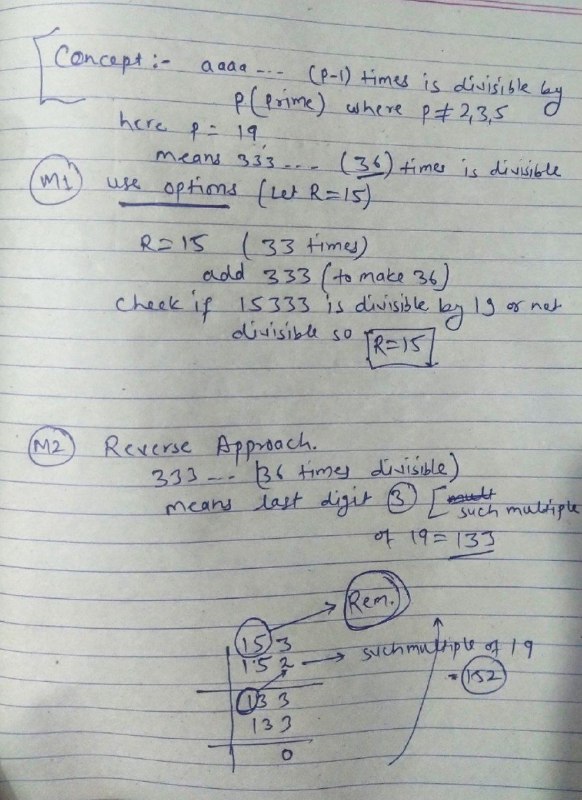 Concept :- aaaa --- (p-1) times is divisible by
p (prime) where p≠2,3,5
here p = 19
means 333 ---- (36) times is divisible
M1 use options (Let R=15)
R=15 (33 times)
add 333 (to make 36)
Check if 15333 is divisible by 19 or not
divisible so R=15
M2 Reverse Approach.
333 --- (36 times divisible)
means last digit 3 [
such multiple
of 19 = 133
Rem.
153
152 → such multiple of 19
= 152
133
133
0